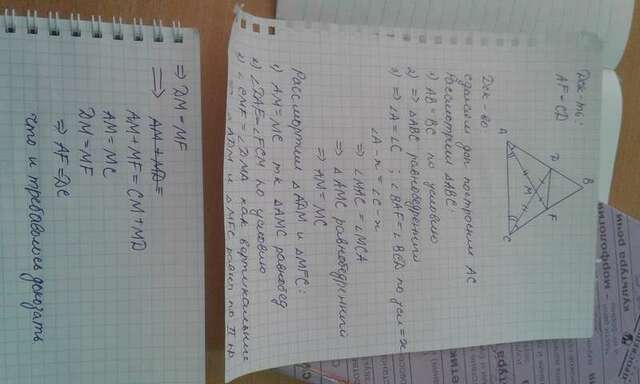 Док-ть:
AF = CD
Док-во
сделаем доп построение AC
Рассмотрим △ABC:
1) AB = BC по условию
2) ⇒ △ABC равнобедренный
3) ⇒ ∠A = ∠C ; ∠BAF = ∠BCD по усл = x
∠A - x = ∠C - x
⇒ ∠MAC = ∠MCA
⇒ △AMC равнобедренный
⇒ AM = MC
Рассмотрим △ADM и △MFC:
1) AM = MC тк △AMC равнобед
2) ∠DAF = ∠FCM по условию
3) ∠CMF = ∠DMA как вертикальные
⇒ △ADM и △MFC равны по II пр
B
D
F
M
A
C
⇒ DM = MF
⇒ AM + MD =
AM + MF = CM + MD
AM = MC
DM = MF
⇒ AF = DC
что и требовалось доказать
культура речи
– морфологи